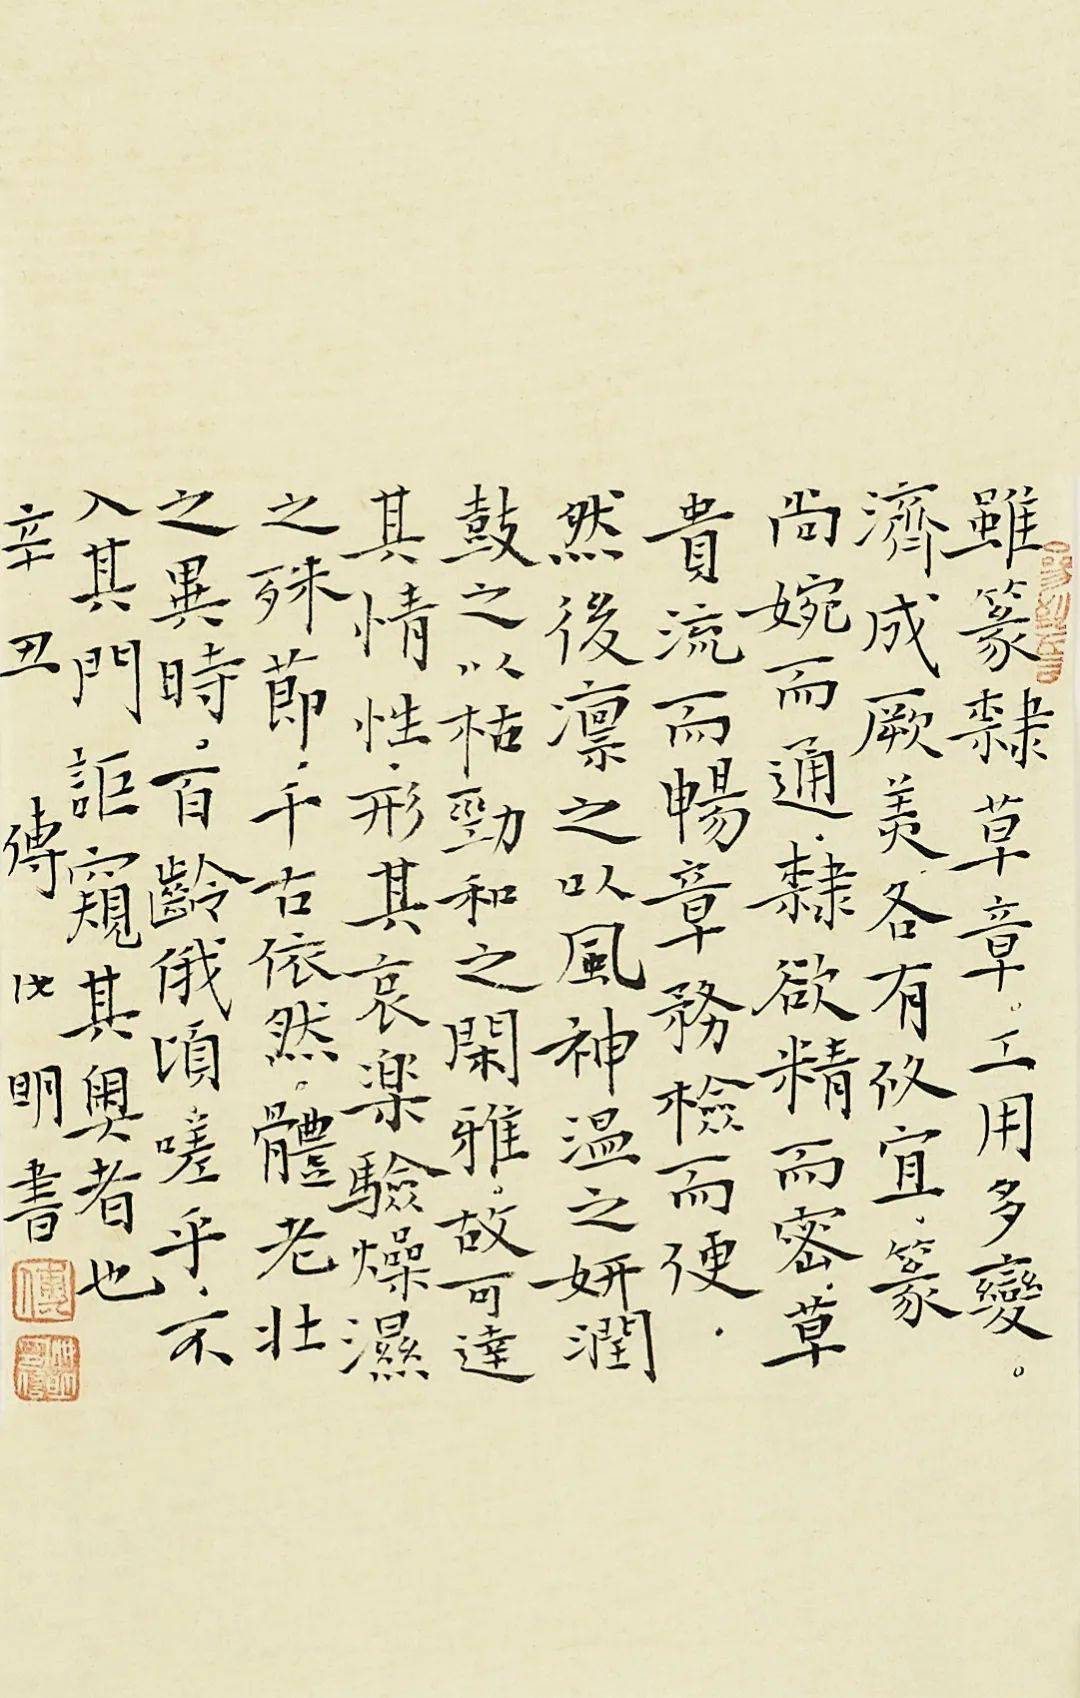 雖篆隸草章。工用多變。
濟成厥美.各有攸宜.篆
尚婉而通.隸欲精而密.草
貴流而暢章務檢而便.
然後凛之以風神温之妍潤
鼓之以枯勁和之閑雅。故可達
其情性.形其哀楽驗燥濕
之殊節.千古依然。體老壯
之異時。百齡俄頃嗟乎.不
入其門詎窺其奧者也
辛丑 傅 明書